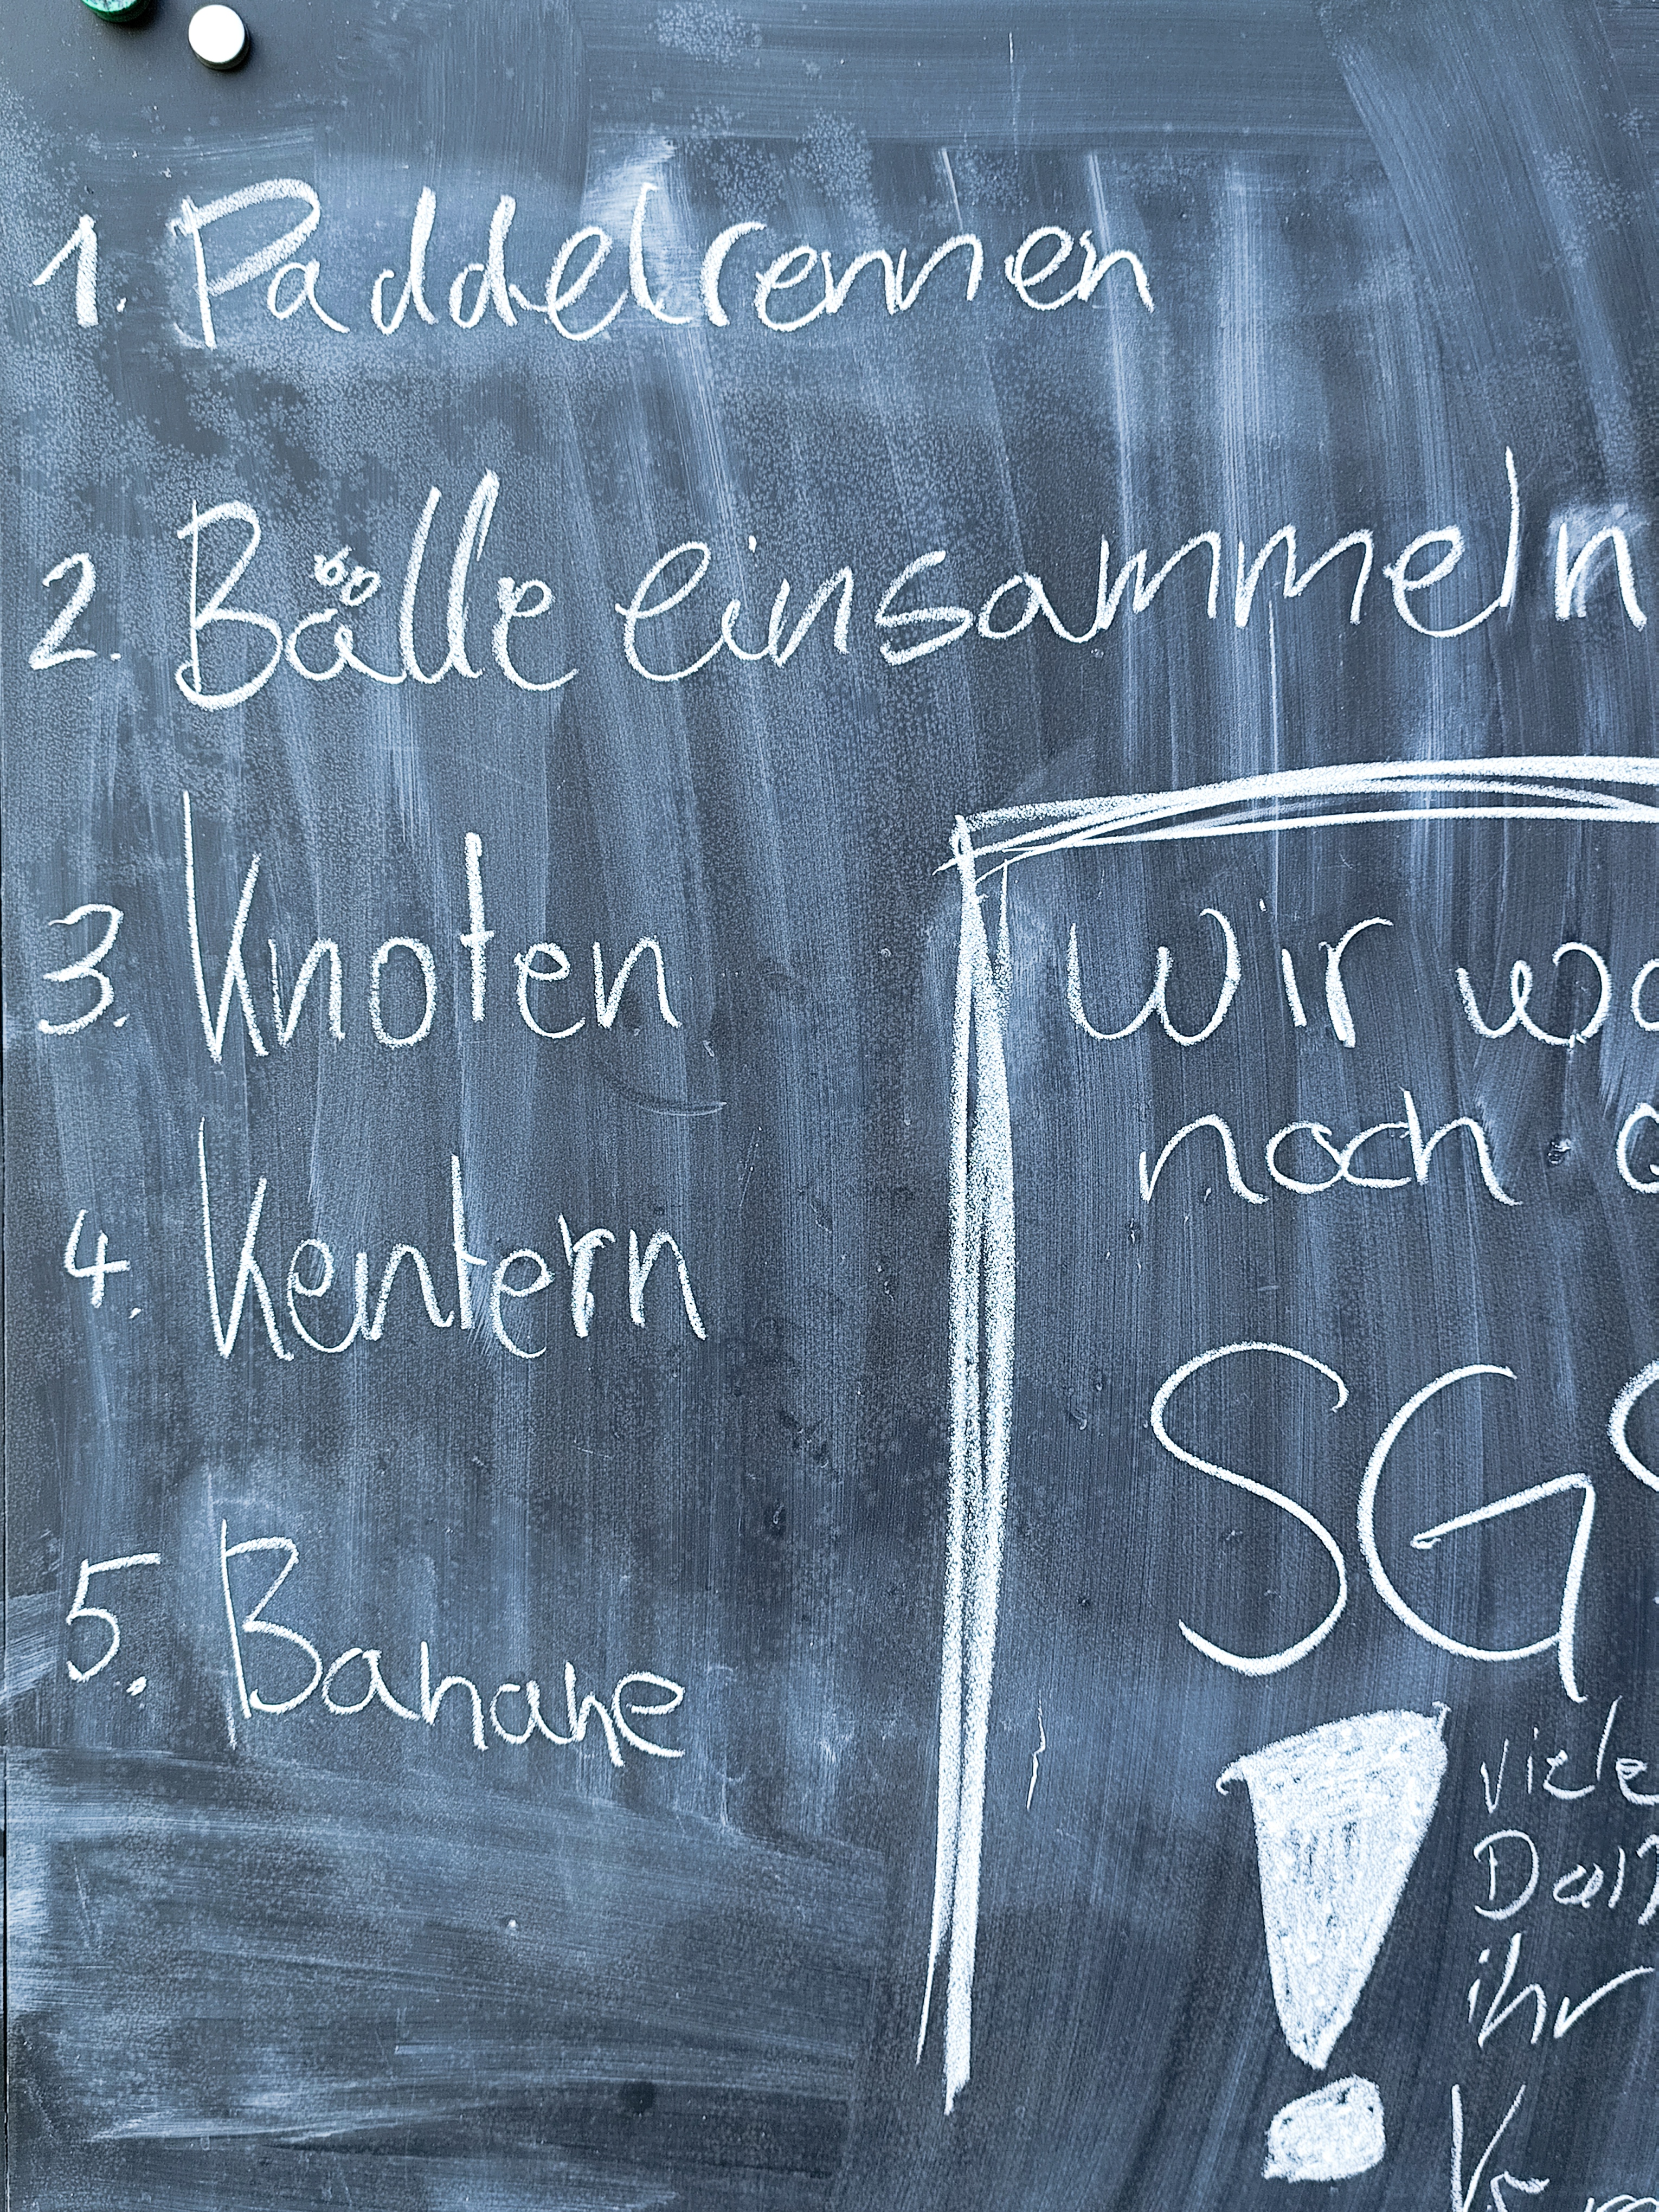 1. Paddelrennen
2. Bälle einsammeln
3. Knoten
4. Kentern
5. Banane
Wir
noch
SG
viele
ihr